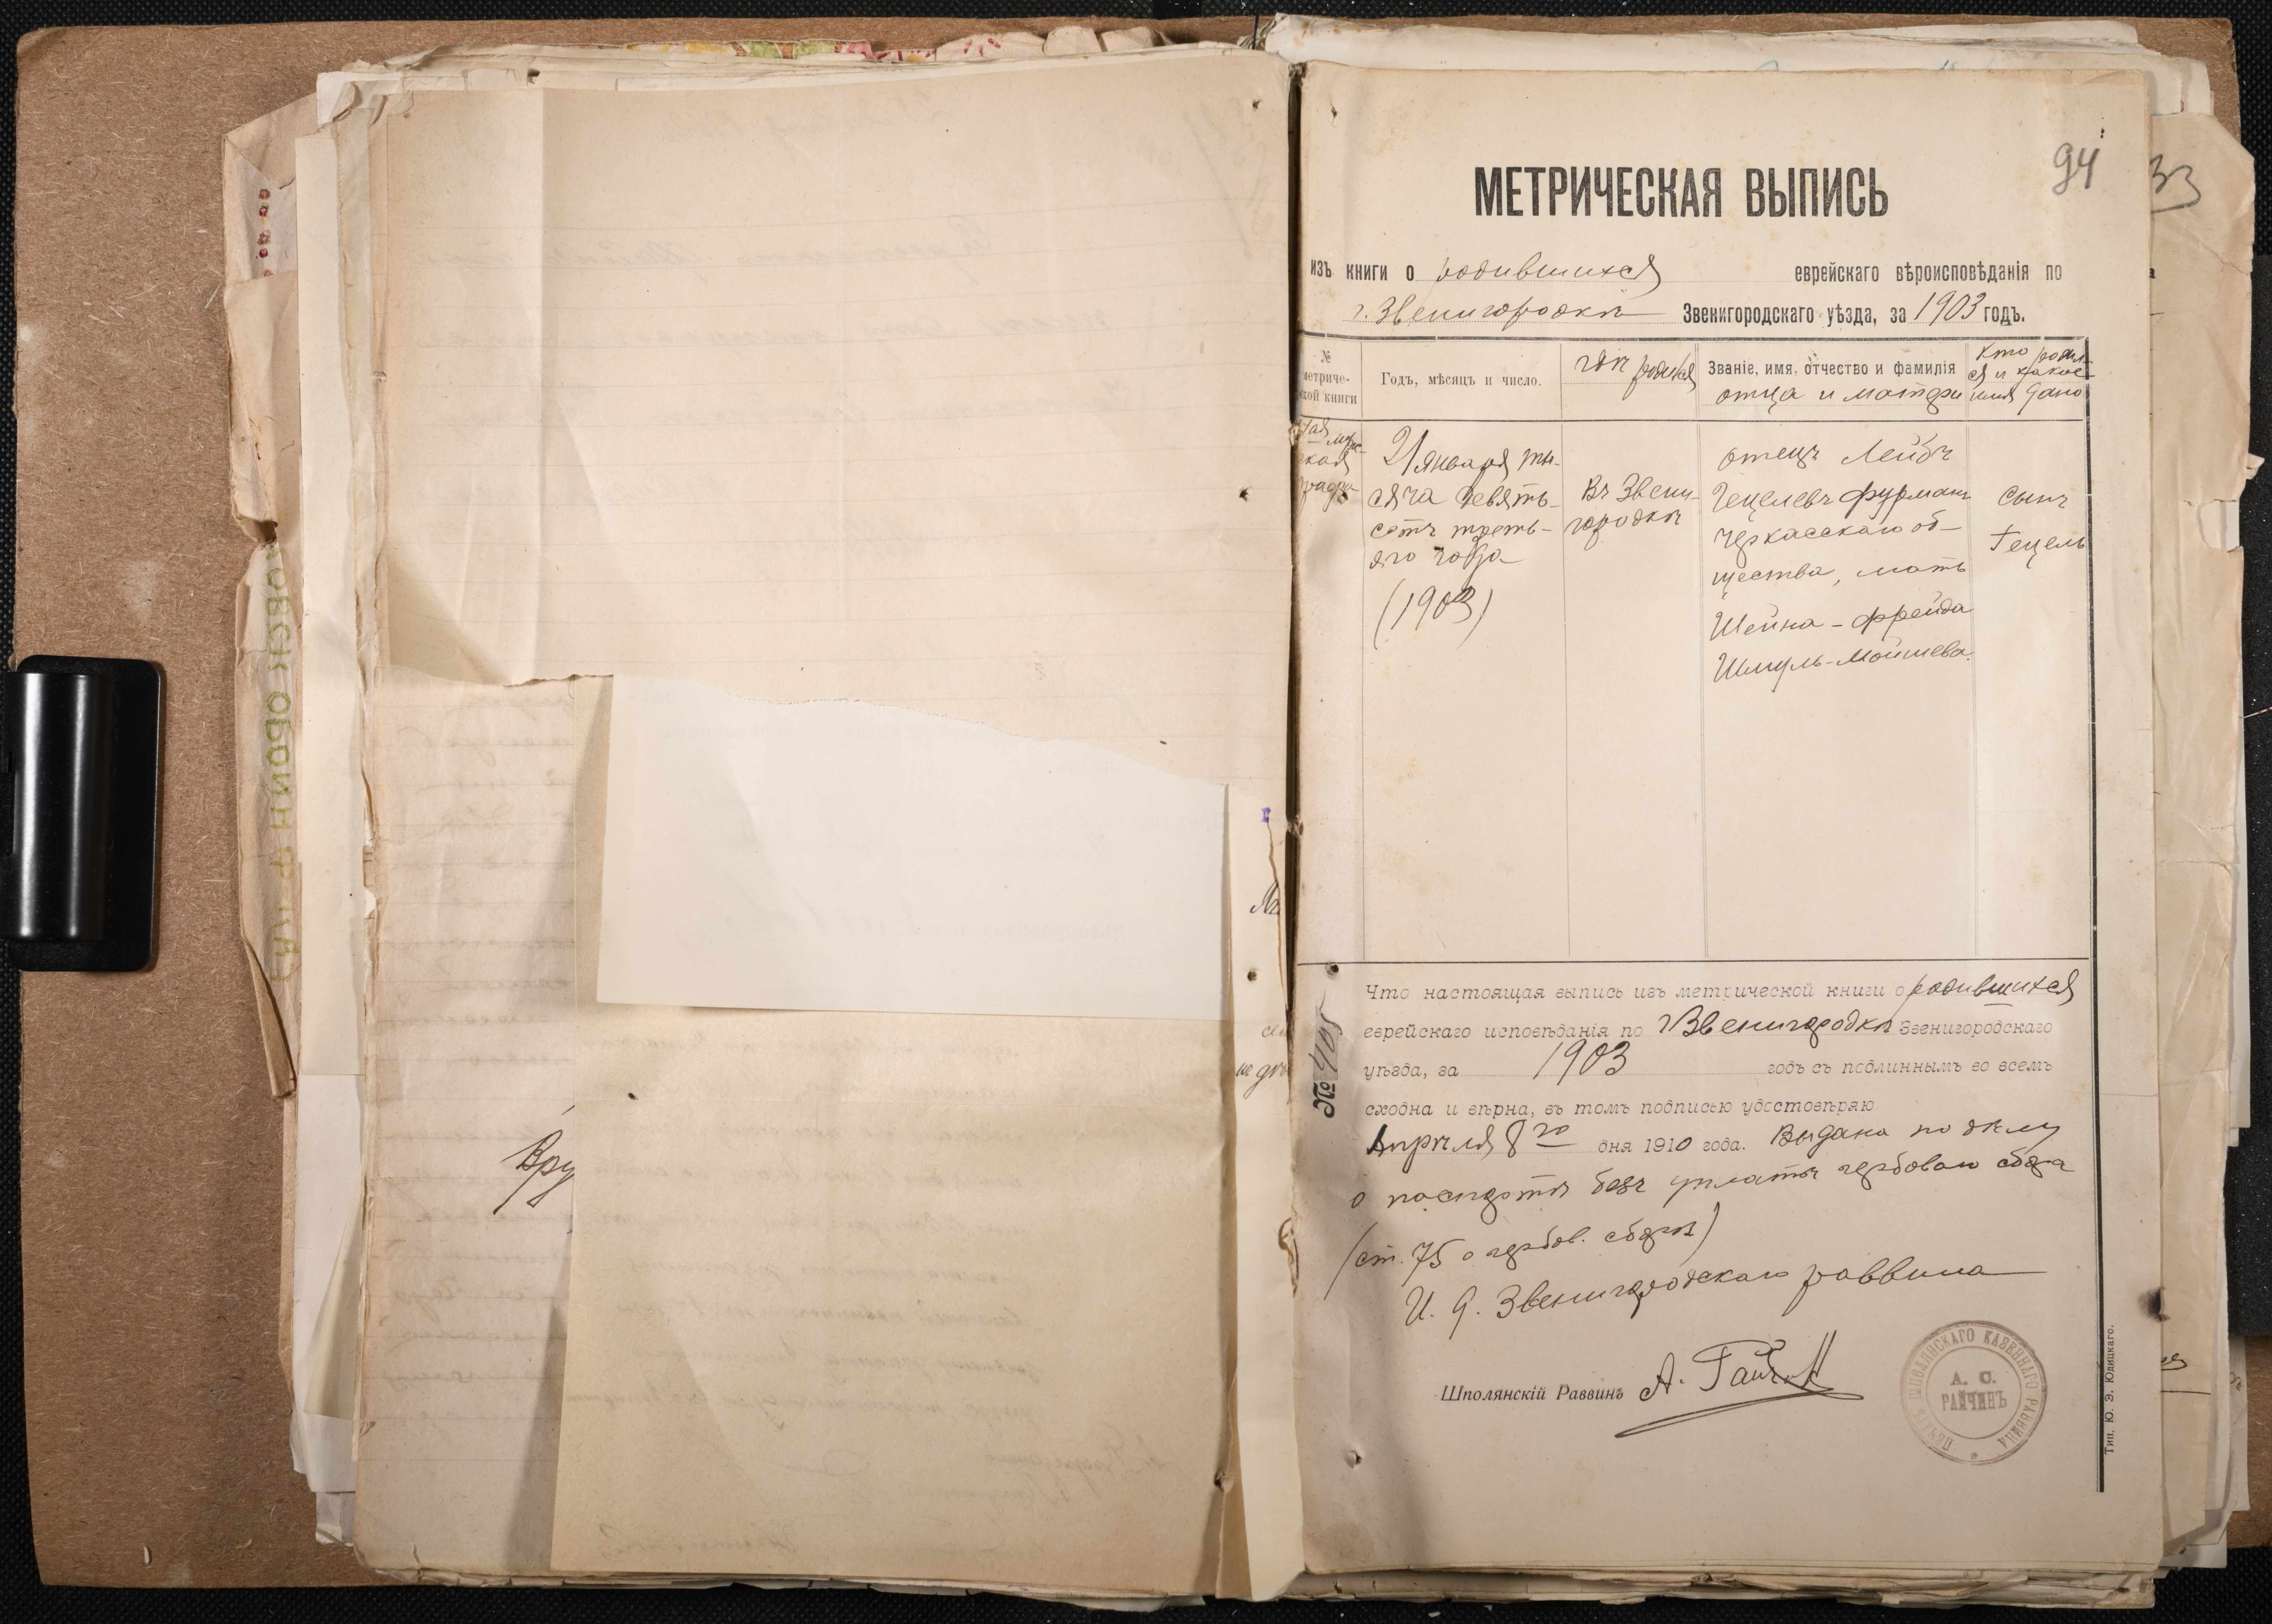 94
33
МЕТРИЧЕСКАЯ ВЫПИСЬ
изъ книги о родившихся еврейскаго вѣроисповѣданія по
г. Звенигородкѣ Звенигородскаго уѣзда, за 1903 годъ.
№ метриче- ской книги
Годъ, мѣсяцъ и число.
гдѣ родился
Званіе, имя, отчество и фамилія отца и матери
Кто родил- ся и какое имя дано
21 января ты-
сяча девять-
сотъ треть-
яго года
(1903)
Въ Звени-
городкѣ
отецъ Лейбъ
Гецелевъ Фурманъ
Черкасскаго об-
щества, мать
Шейна-Фрейда
Шмуль-Мошева.
сынъ
Гецель
№ 405
Что настоящая выпись изъ метрической книги о родившихся
еврейскаго исповѣданія по г. Звенигородкѣ Звенигородскаго
уѣзда, за 1903 годъ съ подлиннымъ во всемъ
сходна и вѣрна, въ томъ подписью удостовѣряю
Апрѣля 8го дня 1910 года. Выдана по дѣлу
о паспортѣ безъ уплаты гербоваго сбора
(ст. 75 о гербов. сборѣ)
И. д. Звенигородскаго раввина
Шполянскій Раввинъ А. Райчин
ПЕЧАТЬ ШПОЛЯНСКАГО КАЗЕННАГО РАВВИНА
А. С.
РАЙЧИНЪ
Тип. Ю. Э. Юдицкаго.
Вру